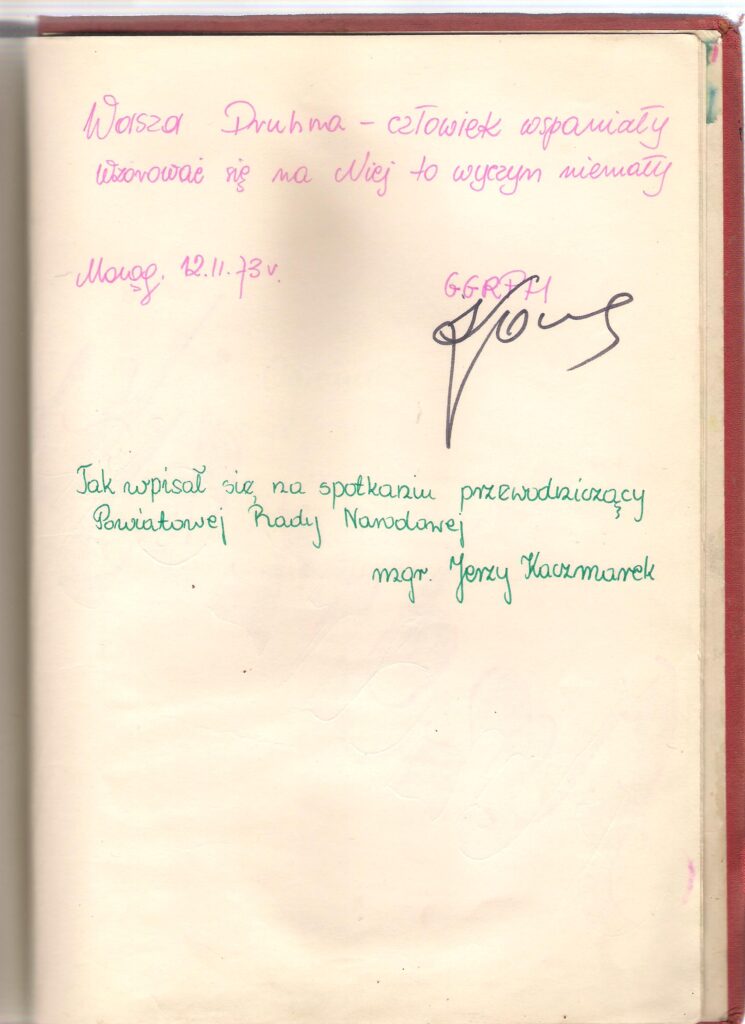 Wasza Druhna – człowiek wspaniały
Wzorować się na Niej to wyczyn niemały
Morąg. 12.II.73 r.
Tak wpisał się na spotkaniu przewodniczący
Powiatowej Rady Narodowej
mgr. Jerzy Kaczmarek